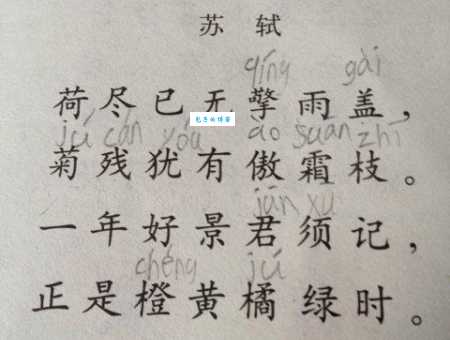 苏 轼
qíng gài
荷尽已无擎雨盖，
jú cán yóu ào suān zhī
菊残犹有傲霜枝。
jūn xū
一年好景君须记，
chéng jú
正是橙黄橘绿时。